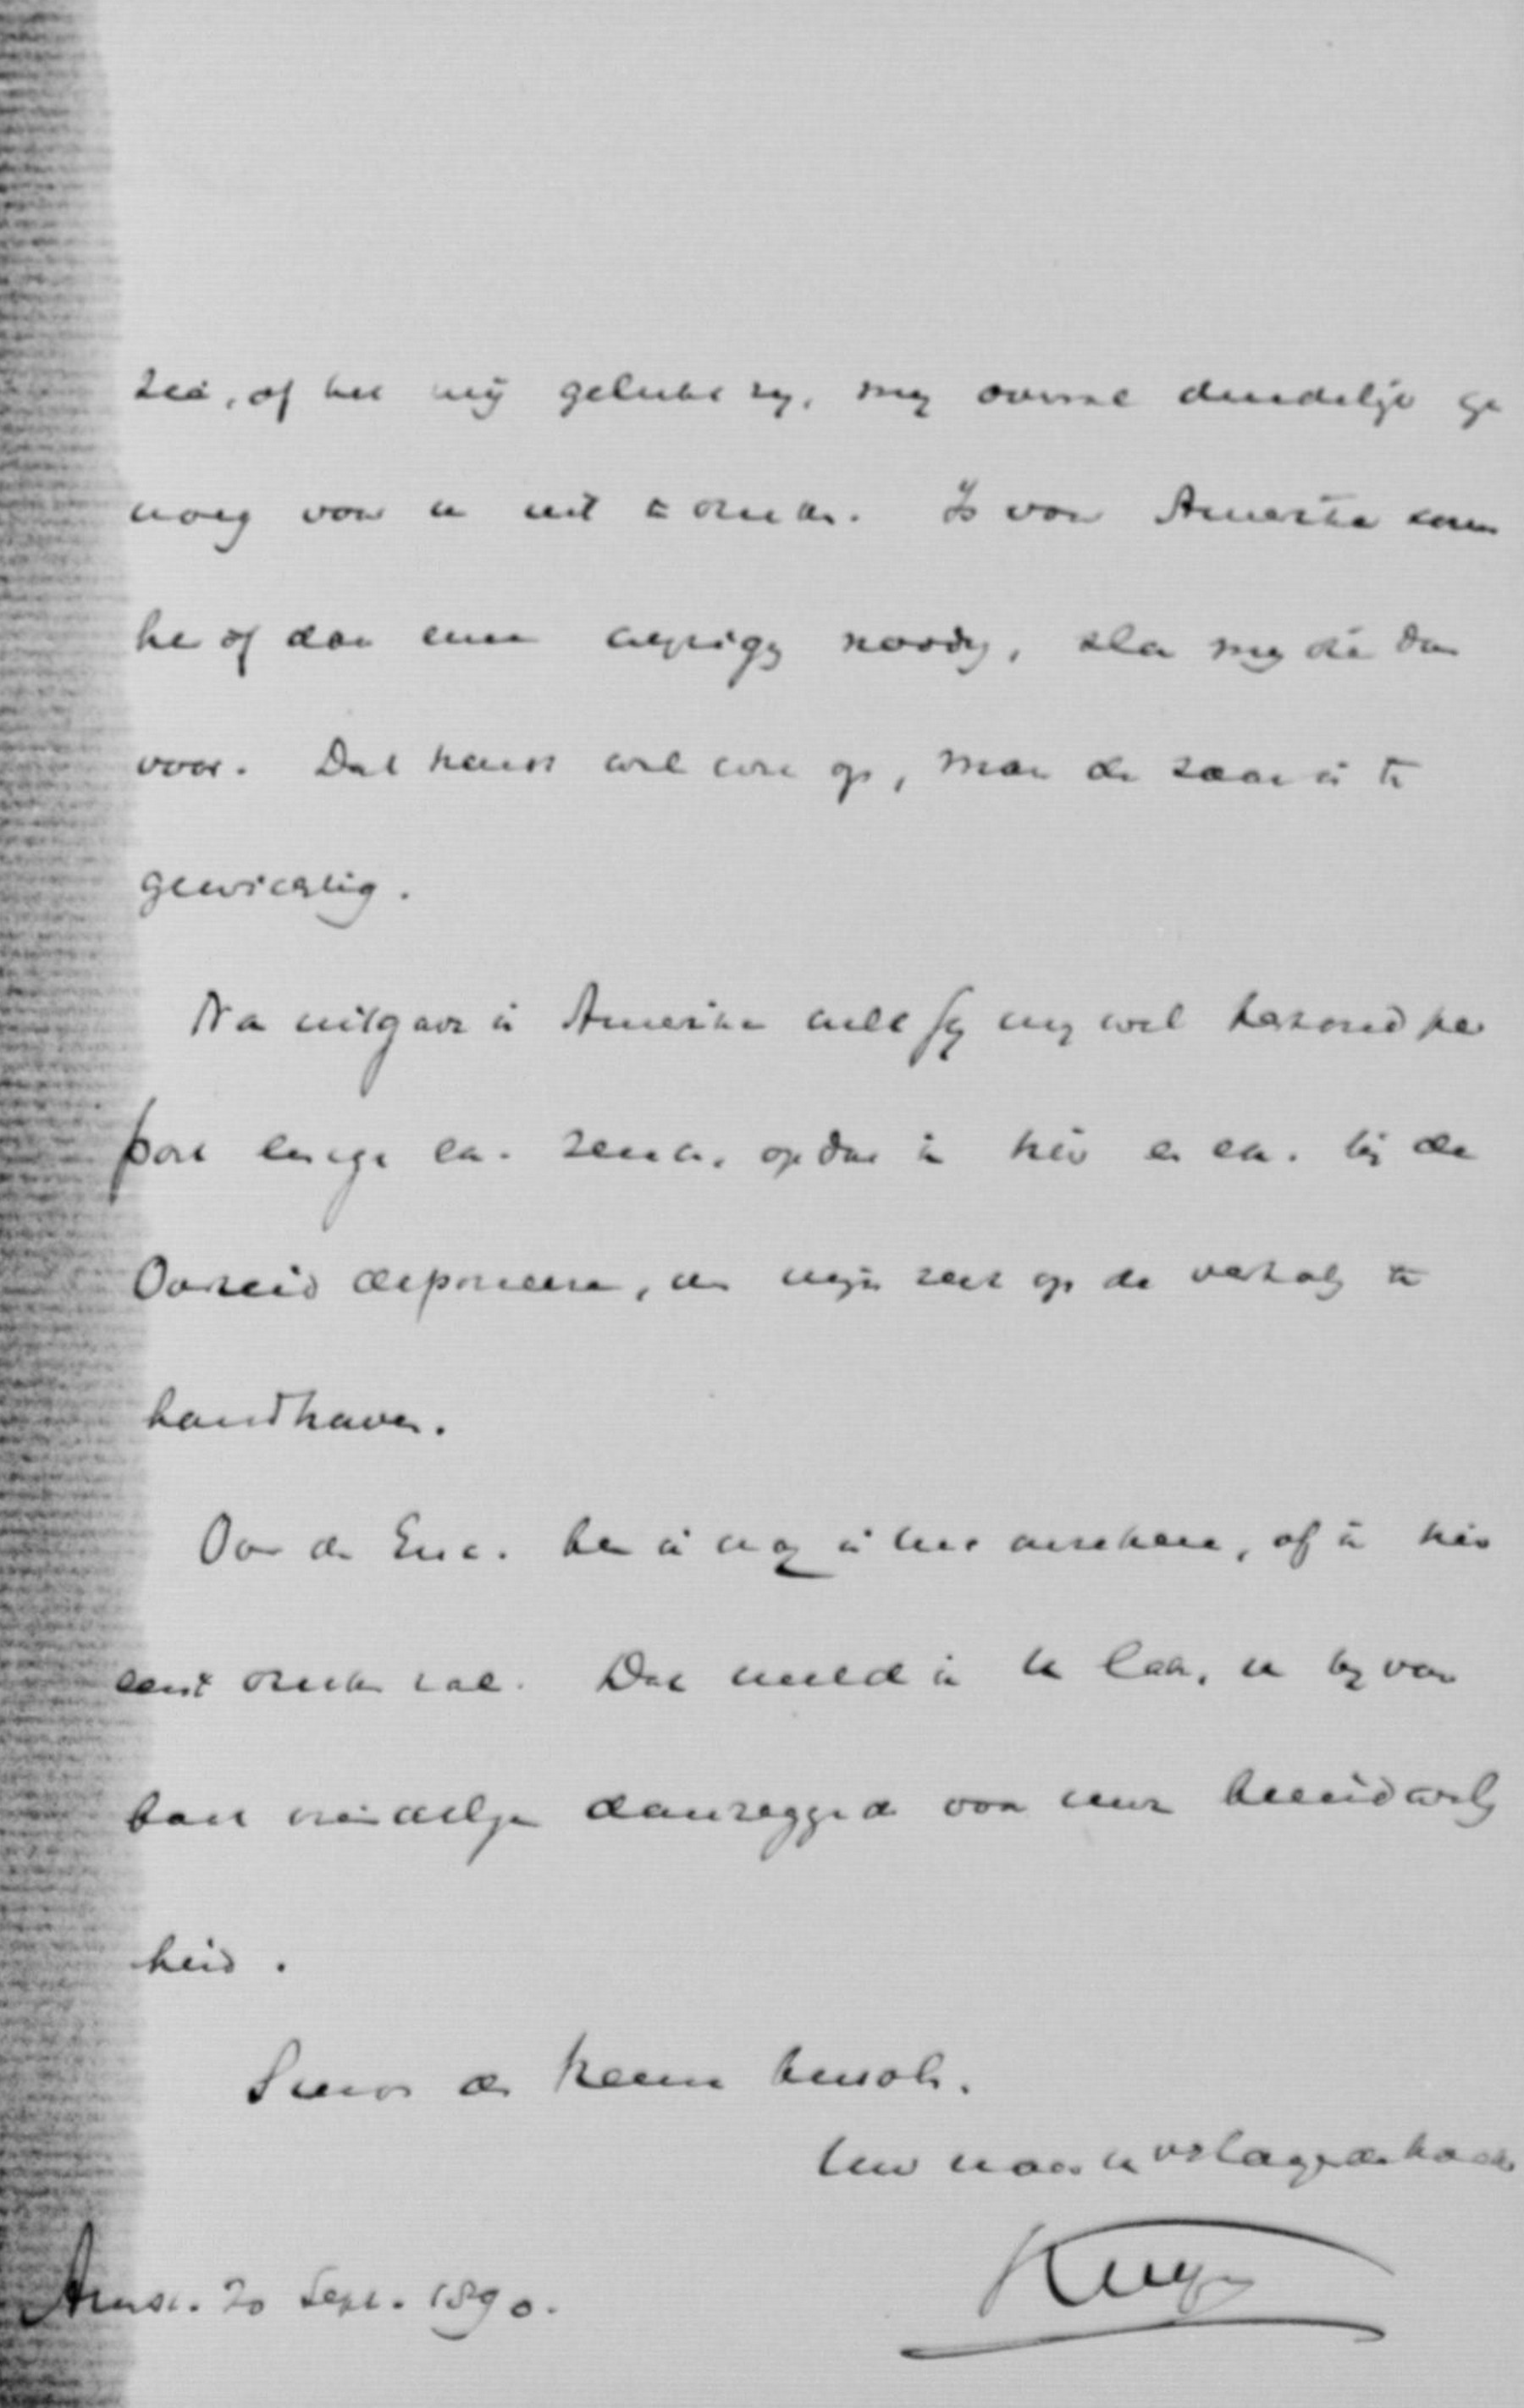 zeer, of het mij gelukt zij, mij overal duidelijk ge
noeg voor u uit te drukken. Is voor Amerika
of daar eene wijziging noodig, sla mij die dan
voor. Dat houdt wel wat op, maar de zaak is te
gewichtig.
Na uitgave in Amerika wilt gij mij wel terstond per
post eenige ex. zenden, opdat ik hier 2 ex. bij de
Overheid deponeere, om mijn recht op de vertaling te
handhaven.
Over de Enc. ben ik nog in het onzekere, of ik hier
eerst drukken zal. Dat meld ik u later, u bij voor
baat vriendelijk dankzeggende voor uwe bereidwillig
heid.
Steeds de Heere bevolen.
Uw
Kuyper
Amst. 20 Sept. 1890.